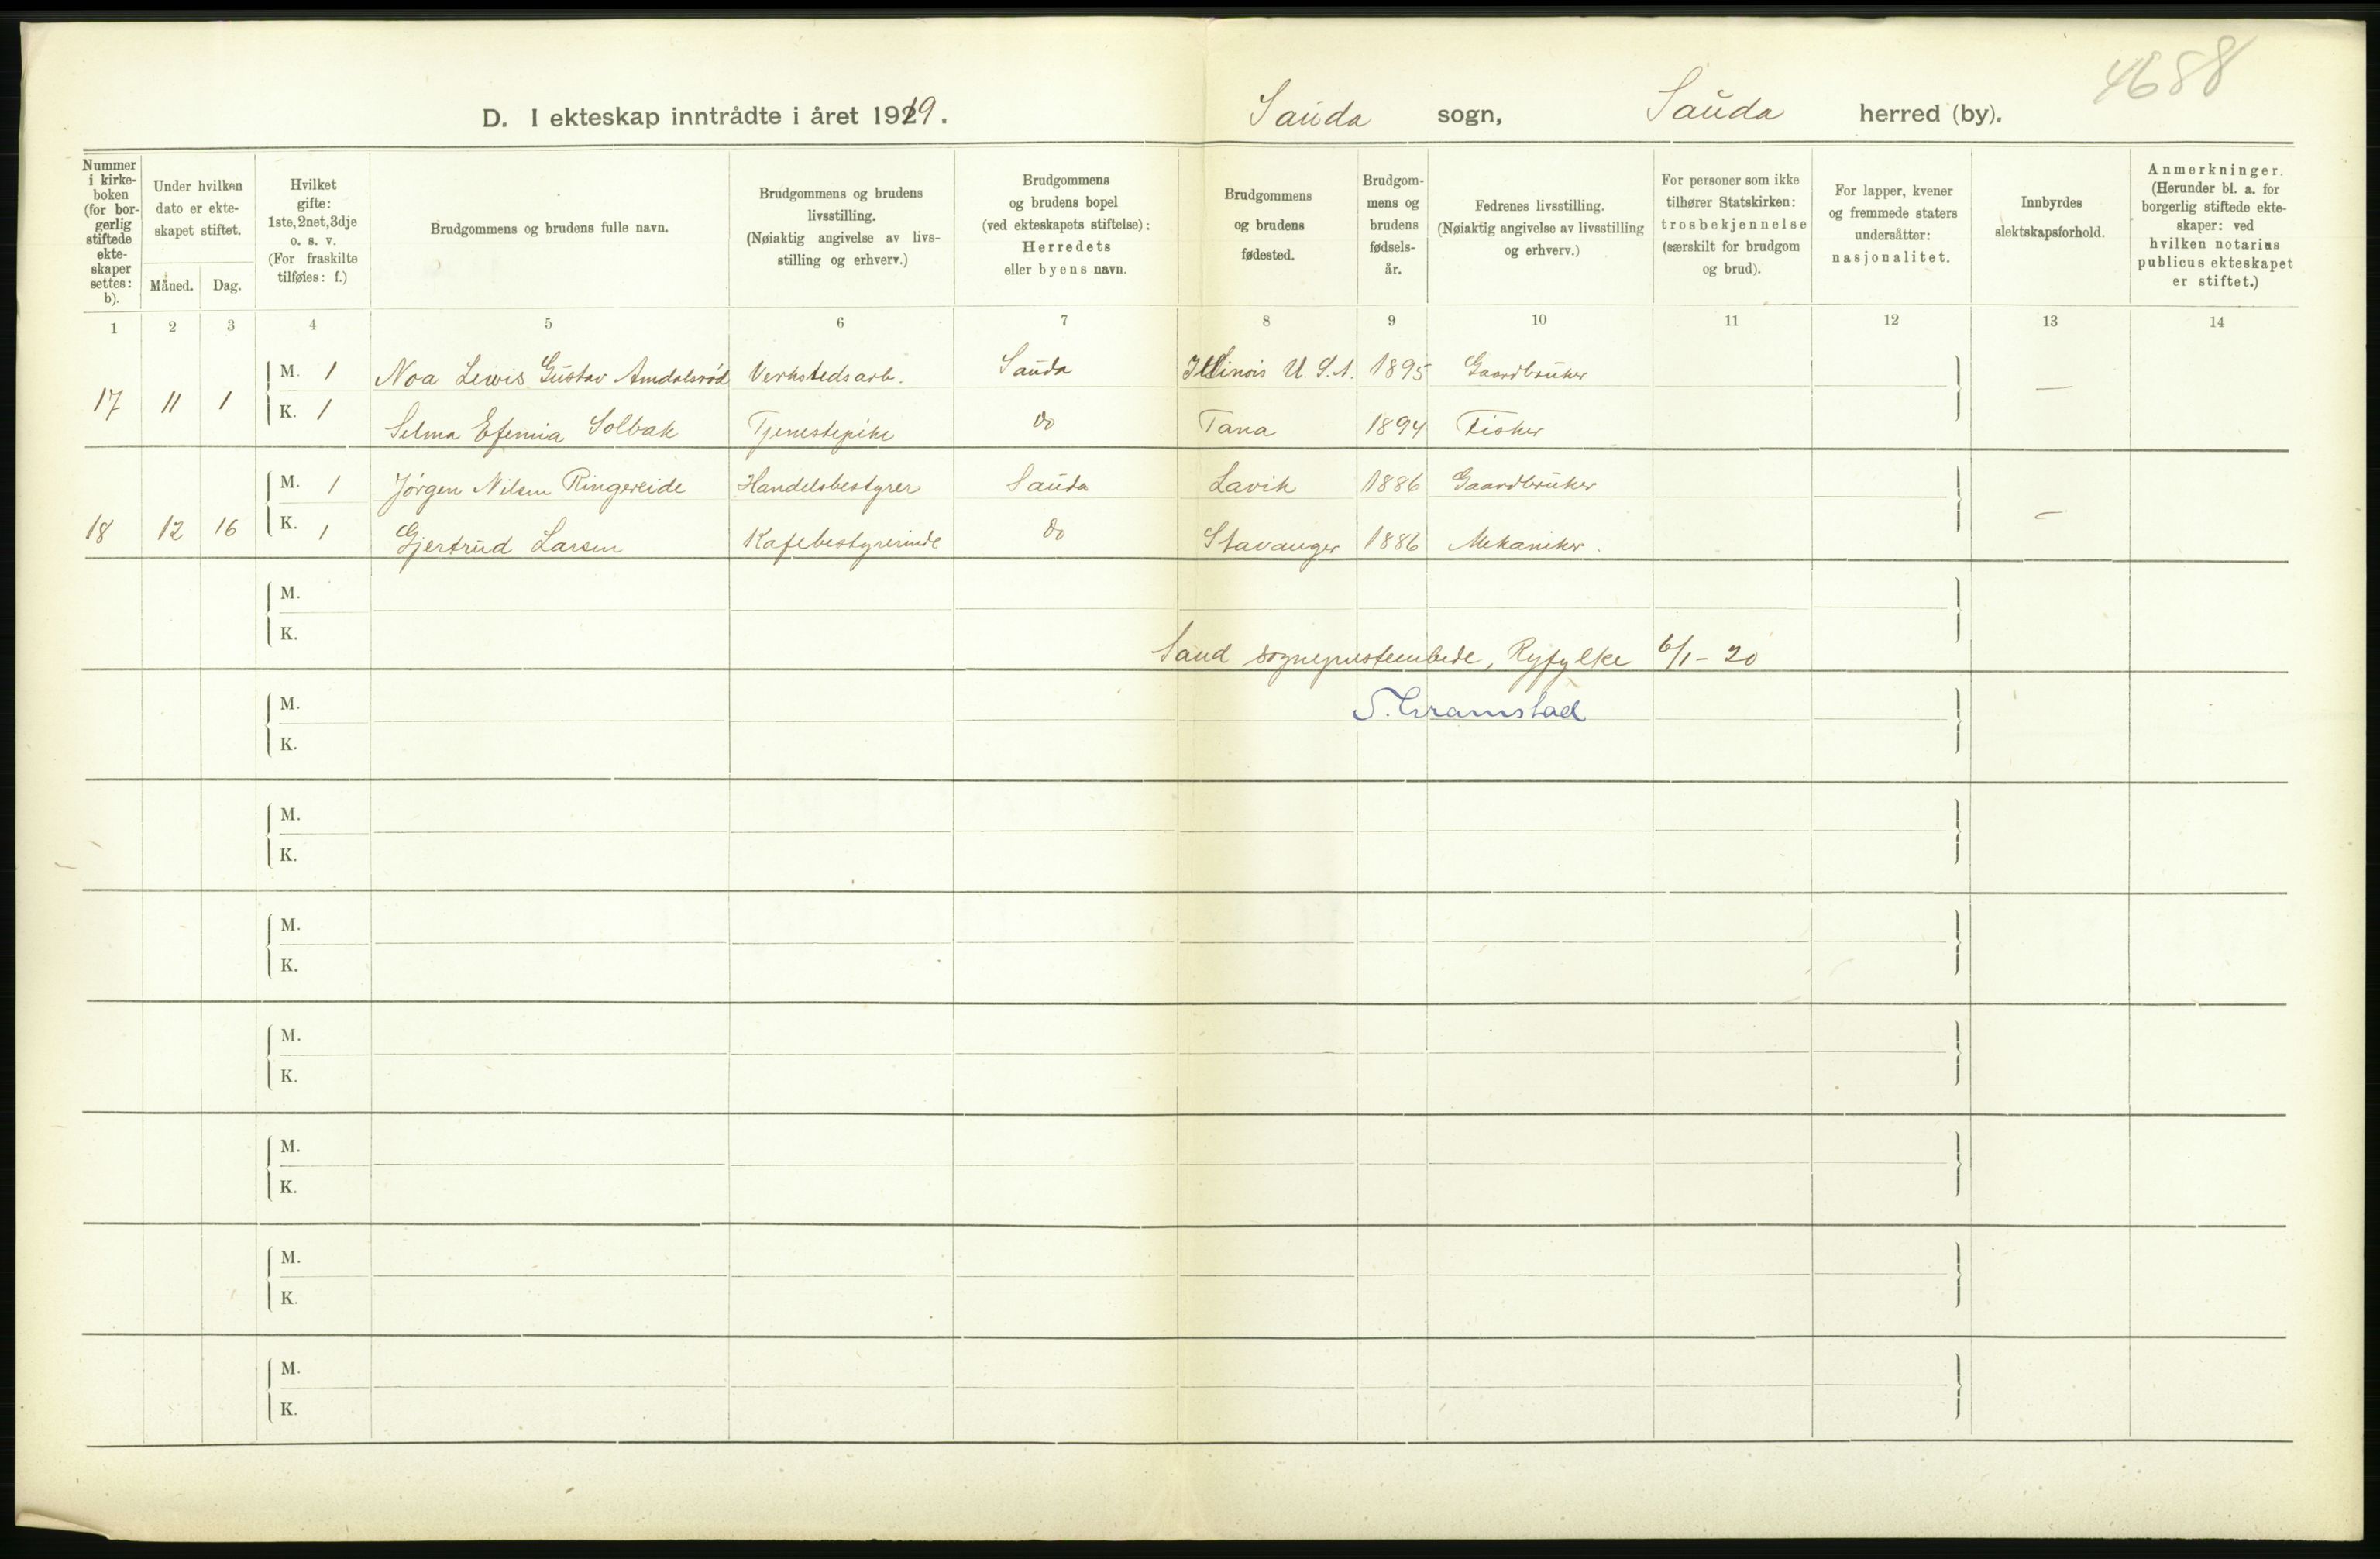 4688
D. I ekteskap inntrådte i året 1919.
Sauda sogn, Sauda herred (by).
Nummer i kirke-boken (for bor-gerlig stiftede ekte-skaper settes: b).
Under hvilken dato er ekte-skapet stiftet.
Måned. Dag.
Hvilket gifte: 1ste, 2net, 3dje o. s. v. (For fraskilte tilføies: f.)
Brudgommens og brudens fulle navn.
Brudgommens og brudens livsstilling. (Nøiaktig angivelse av livs-stilling og erhverv.)
Brudgommens og brudens bopel (ved ekteskapets stiftelse): Herredets eller byens navn.
Brudgommens og brudens fødested.
Brudgom-mens og brudens fødsels-år.
Fedrenes livsstilling. (Nøiaktig angivelse av livsstilling og erhverv.)
For personer som ikke tilhører Statskirken: trosbekjennelse (særskilt for brudgom og brud).
For lapper, kvener og fremmede staters undersåtter: nasjonalitet.
Innbyrdes slektskapsforhold.
Anmerkninger. (Herunder bl. a. for borgerlig stiftede ekte-skaper: ved hvilken notarius publicus ekteskapet er stiftet.)
1 2 3 4 5 6 7 8 9 10 11 12 13 14
17 11 1 M. 1 Noa Lewis Gustav Amdalsrød Verkstedsarb. Sauda Illinois U.S.A. 1895 Gaardbruker —
K. 1 Selma Efemia Solbak Tjenestepike do Tana 1894 Fisker
18 12 16 M. 1 Jørgen Nilsen Ringereide Handelsbestyrer Sauda Lavik 1886 Gaardbruker —
K. 1 Gjertrud Larsen Kafebestyrerinde do Stavanger 1886 Mekaniker.
M.
K.
Sand sogneprestembede, Ryfylke 6/1-20
M. T. Gramstad
K.
M.
K.
M.
K.
M.
K.
M.
K.
M.
K.
M.
K.